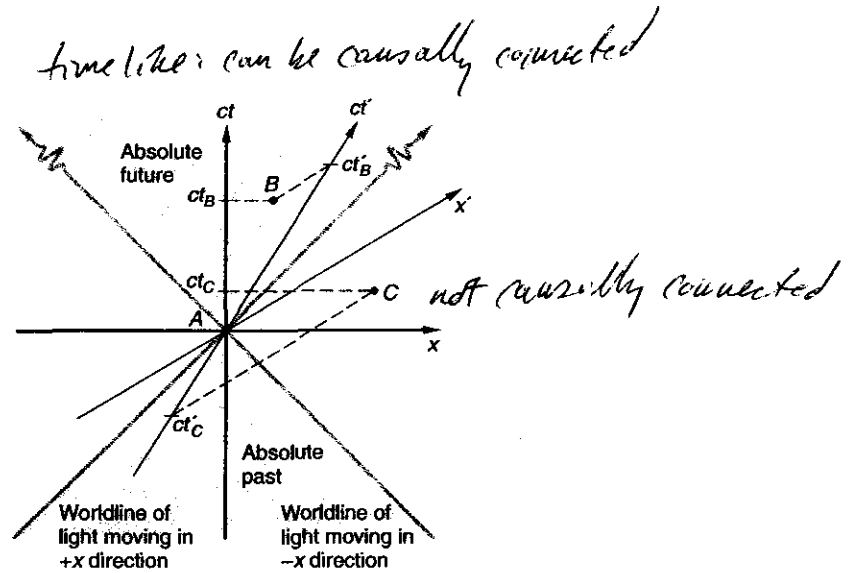 timelike: can be causally connected
ct
ct′
Absolute
future
B
ct′B
ctB
x′
ctC
C
not causally connected
A
x
ct′C
Absolute
past
Worldline of
light moving in
+x direction
Worldline of
light moving in
−x direction